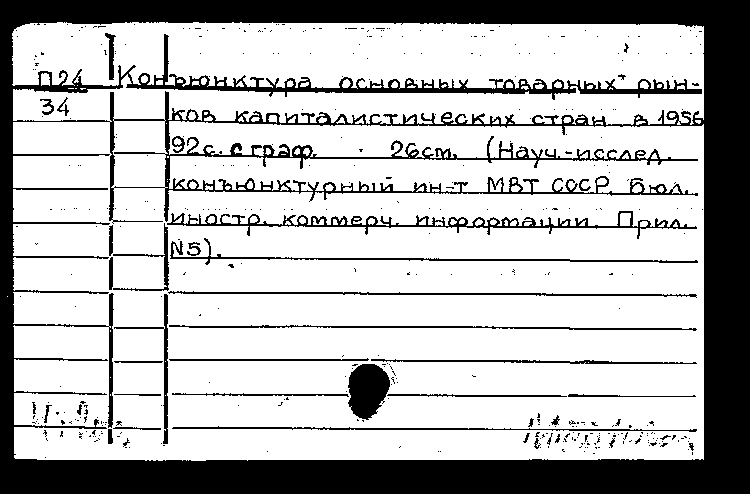 П24 Конъюнктура основных товарных рын-
34 ков капиталистических стран в 1956
92с. с граф. 26cm. (Науч.-исслед.
конъюнктурный ин-т МВТ СССР. Бюл.
иностр. коммерч. информации. Прил.
N5).